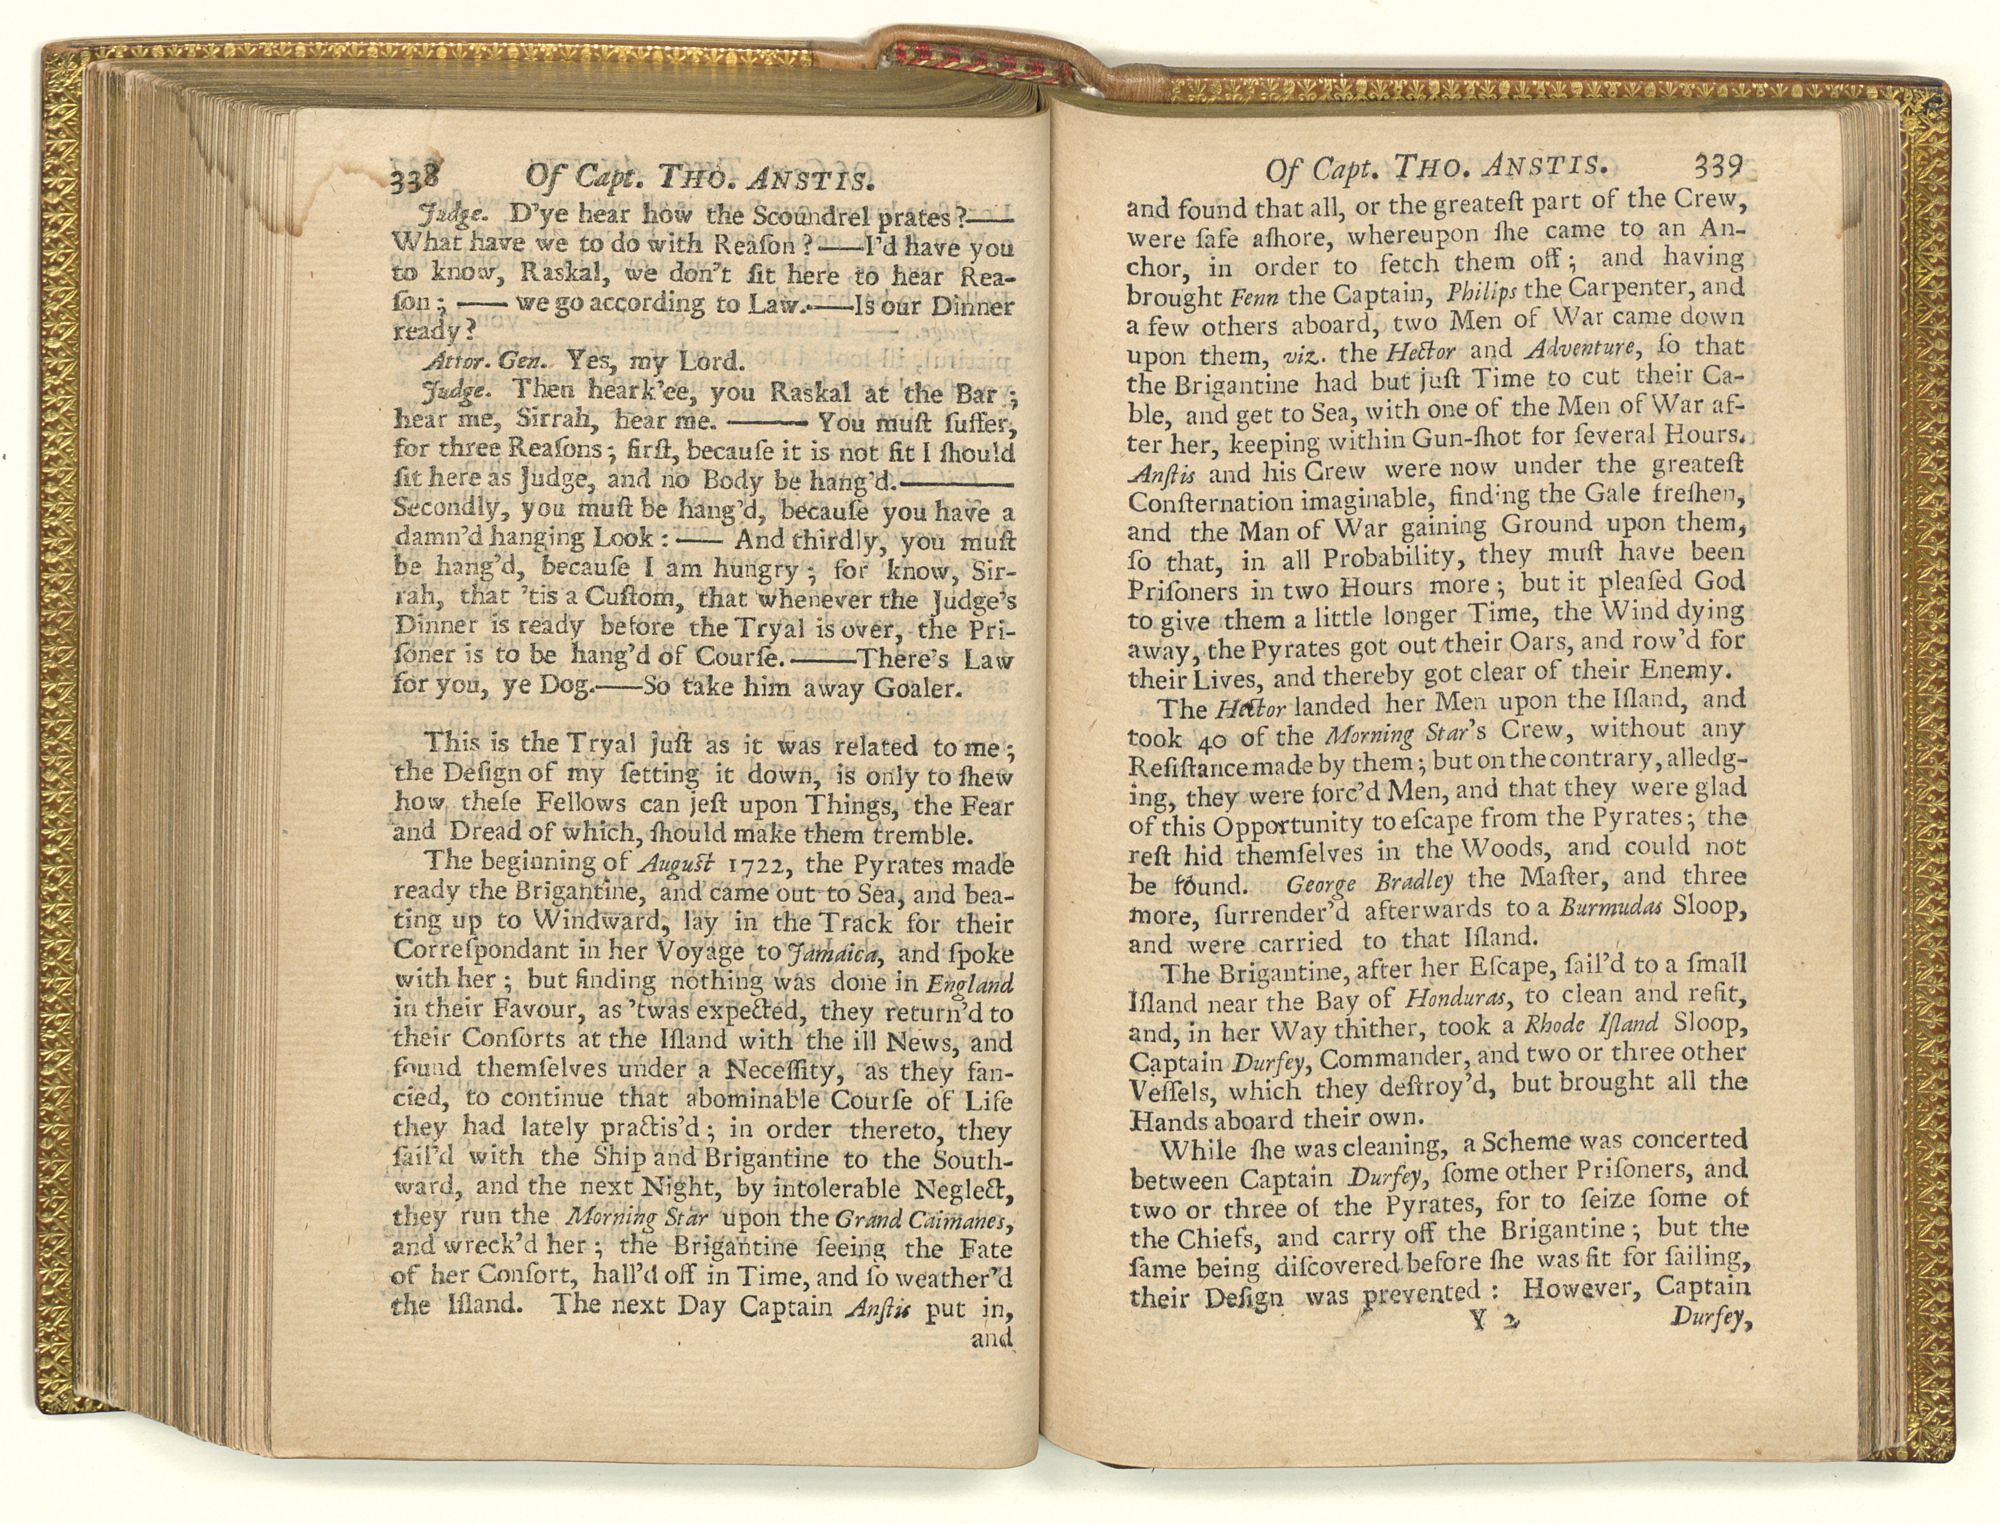 338 Of Capt. THO. ANSTIS.
Judge. D'ye hear how the Scoundrel prates?——
What have we to do with Reaſon?——I'd have you
to know, Raskal, we don't ſit here to hear Rea-
ſon; —— we go according to Law.——Is our Dinner
ready?
Attor. Gen. Yes, my Lord.
Judge. Then heark'ee, you Raskal at the Bar;
hear me, Sirrah, hear me. —— You muſt ſuffer,
for three Reaſons; firſt, becauſe it is not fit I ſhould
ſit here as Judge, and no Body be hang'd.——
Secondly, you muſt be hang'd, becauſe you have a
damn'd hanging Look: —— And thirdly, you muſt
be hang'd, becauſe I am hungry; for know, Sir-
rah, that 'tis a Cuſtom, that whenever the Judge's
Dinner is ready before the Tryal is over, the Pri-
ſoner is to be hang'd of Courſe.——There's Law
for you, ye Dog.——So take him away Goaler.
This is the Tryal juſt as it was related to me;
the Deſign of my ſetting it down, is only to ſhew
how theſe Fellows can jeſt upon Things, the Fear
and Dread of which, ſhould make them tremble.
The beginning of Auguſt 1722, the Pyrates made
ready the Brigantine, and came out to Sea, and bea-
ting up to Windward, lay in the Track for their
Correſpondant in her Voyage to Jamaica, and ſpoke
with her; but finding nothing was done in England
in their Favour, as 'twas expected, they return'd to
their Conſorts at the Iſland with the ill News, and
found themſelves under a Neceſſity, as they fan-
cied, to continue that abominable Courſe of Life
they had lately practis'd; in order thereto, they
ſail'd with the Ship and Brigantine to the South-
ward, and the next Night, by intolerable Neglect,
they run the Morning Star upon the Grand Caimanes,
and wreck'd her; the Brigantine ſeeing the Fate
of her Conſort, hall'd off in Time, and ſo weather'd
the Iſland. The next Day Captain Anſtis put in,
and
Of Capt. THO. ANSTIS. 339
and found that all, or the greateſt part of the Crew,
were ſafe aſhore, whereupon ſhe came to an An-
chor, in order to fetch them off; and having
brought Fenn the Captain, Philips the Carpenter, and
a few others aboard, two Men of War came down
upon them, viz. the Hector and Adventure, ſo that
the Brigantine had but juſt Time to cut their Ca-
ble, and get to Sea, with one of the Men of War af-
ter her, keeping within Gun-ſhot for ſeveral Hours.
Anſtis and his Crew were now under the greateſt
Conſternation imaginable, finding the Gale freſhen,
and the Man of War gaining Ground upon them,
ſo that, in all Probability, they muſt have been
Priſoners in two Hours more; but it pleaſed God
to give them a little longer Time, the Wind dying
away, the Pyrates got out their Oars, and row'd for
their Lives, and thereby got clear of their Enemy.
The Hector landed her Men upon the Iſland, and
took 40 of the Morning Star's Crew, without any
Reſiſtance made by them; but on the contrary, alledg-
ing, they were forc'd Men, and that they were glad
of this Opportunity to eſcape from the Pyrates; the
reſt hid themſelves in the Woods, and could not
be found. George Bradley the Maſter, and three
more, ſurrender'd afterwards to a Burmudas Sloop,
and were carried to that Iſland.
The Brigantine, after her Eſcape, ſail'd to a ſmall
Iſland near the Bay of Honduras, to clean and refit,
and, in her Way thither, took a Rhode Iſland Sloop,
Captain Durfey, Commander, and two or three other
Veſſels, which they deſtroy'd, but brought all the
Hands aboard their own.
While ſhe was cleaning, a Scheme was concerted
between Captain Durfey, ſome other Priſoners, and
two or three of the Pyrates, for to ſeize ſome of
the Chiefs, and carry off the Brigantine; but the
ſame being diſcovered before ſhe was fit for ſailing,
their Deſign was prevented: However, Captain
Y 2 Durfey,